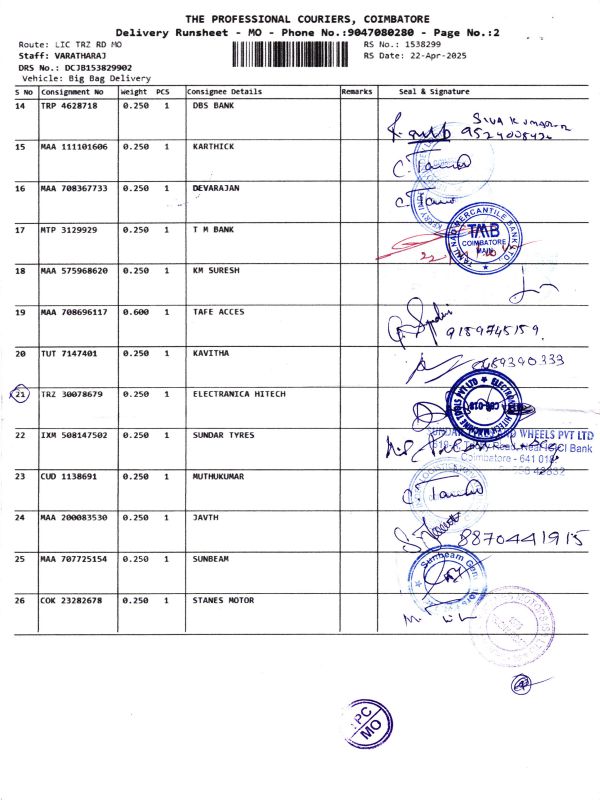 THE PROFESSIONAL COURIERS, COIMBATORE
Delivery Runsheet - MO - Phone No.:9047080280 - Page No.:2
Route: LIC TRZ RD MO RS No.: 1538299
Staff: VARATHARAJ RS Date: 22-Apr-2025
DRS No.: DCJB153829902
Vehicle: Big Bag Delivery
S No Consignment No Weight PCS Consignee Details Remarks Seal & Signature
14 TRP 4628718 0.250 1 DBS BANK
15 MAA 111101606 0.250 1 KARTHICK
16 MAA 708367733 0.250 1 DEVARAJAN
17 MTP 3129929 0.250 1 T M BANK
TAMILNAD MERCANTILE BANK LTD
TMB
COIMBATORE
MAIN
18 MAA 575968620 0.250 1 KM SURESH
19 MAA 708696117 0.600 1 TAFE ACCES
9159745159
20 TUT 7147401 0.250 1 KAVITHA
21 TRZ 30078679 0.250 1 ELECTRANICA HITECH
22 IXM 508147502 0.250 1 SUNDAR TYRES
WHEELS PVT LTD
Road, Near ICICI Bank
Coimbatore - 641 018
23 CUD 1138691 0.250 1 MUTHUKUMAR
24 MAA 200083530 0.250 1 JAVTH
8870441915
25 MAA 707725154 0.250 1 SUNBEAM
Sunbeam
26 COK 23282678 0.250 1 STANES MOTOR
PC
MO